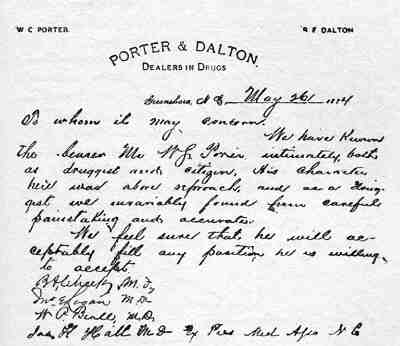 W C PORTER.
R F DALTON
PORTER & DALTON.
DEALERS IN DRUGS
Greensboro, N. C. May 26 1884
To whom it may concern.
We have known
the bearer Mr W S Porter, intimately, both
as druggist and citizen, His character
here was above reproach, and as a drug-
gist we invariably found him careful
painstaking and accurate.
We feel sure that he will ac-
ceptably fill any position he is willing
to accept
M.D.
Logan M.D.
W P Beall, M.D.
Jas K Hall M D Ex Pres Med N C